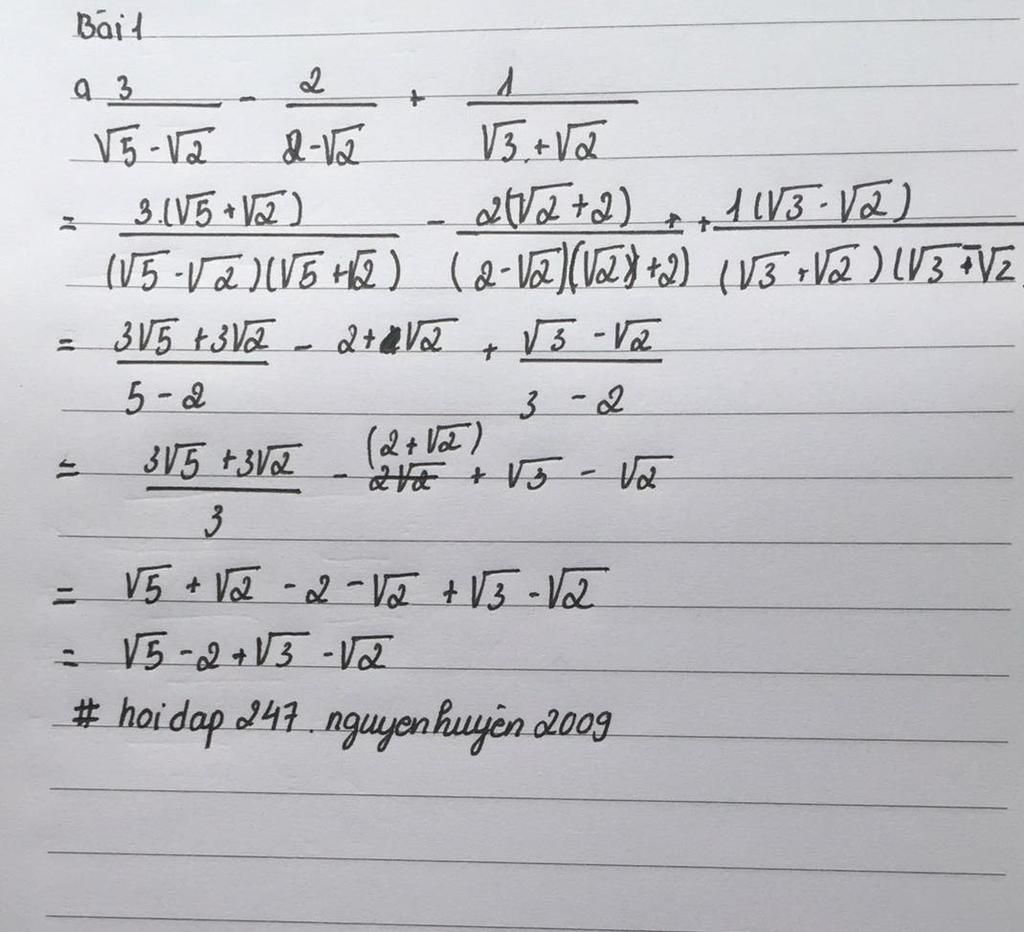 Bài 1
a 3/(√5 - √2) - 2/(2 - √2) + 1/(√3 + √2)
= 3.(√5 + √2)/((√5 - √2)(√5 + √2)) - 2(√2 + 2)/((2 - √2)(√2 + 2)) + + 1(√3 - √2)/((√3 + √2)(√3 - √2
= (3√5 + 3√2)/(5 - 2) - 2 + √2 + (√3 - √2)/(3 - 2)
= (3√5 + 3√2)/3 - (2 + √2) + √3 - √2
= √5 + √2 - 2 - √2 + √3 - √2
= √5 - 2 + √3 - √2
# hoidap 247. nguyenhuyên 2009